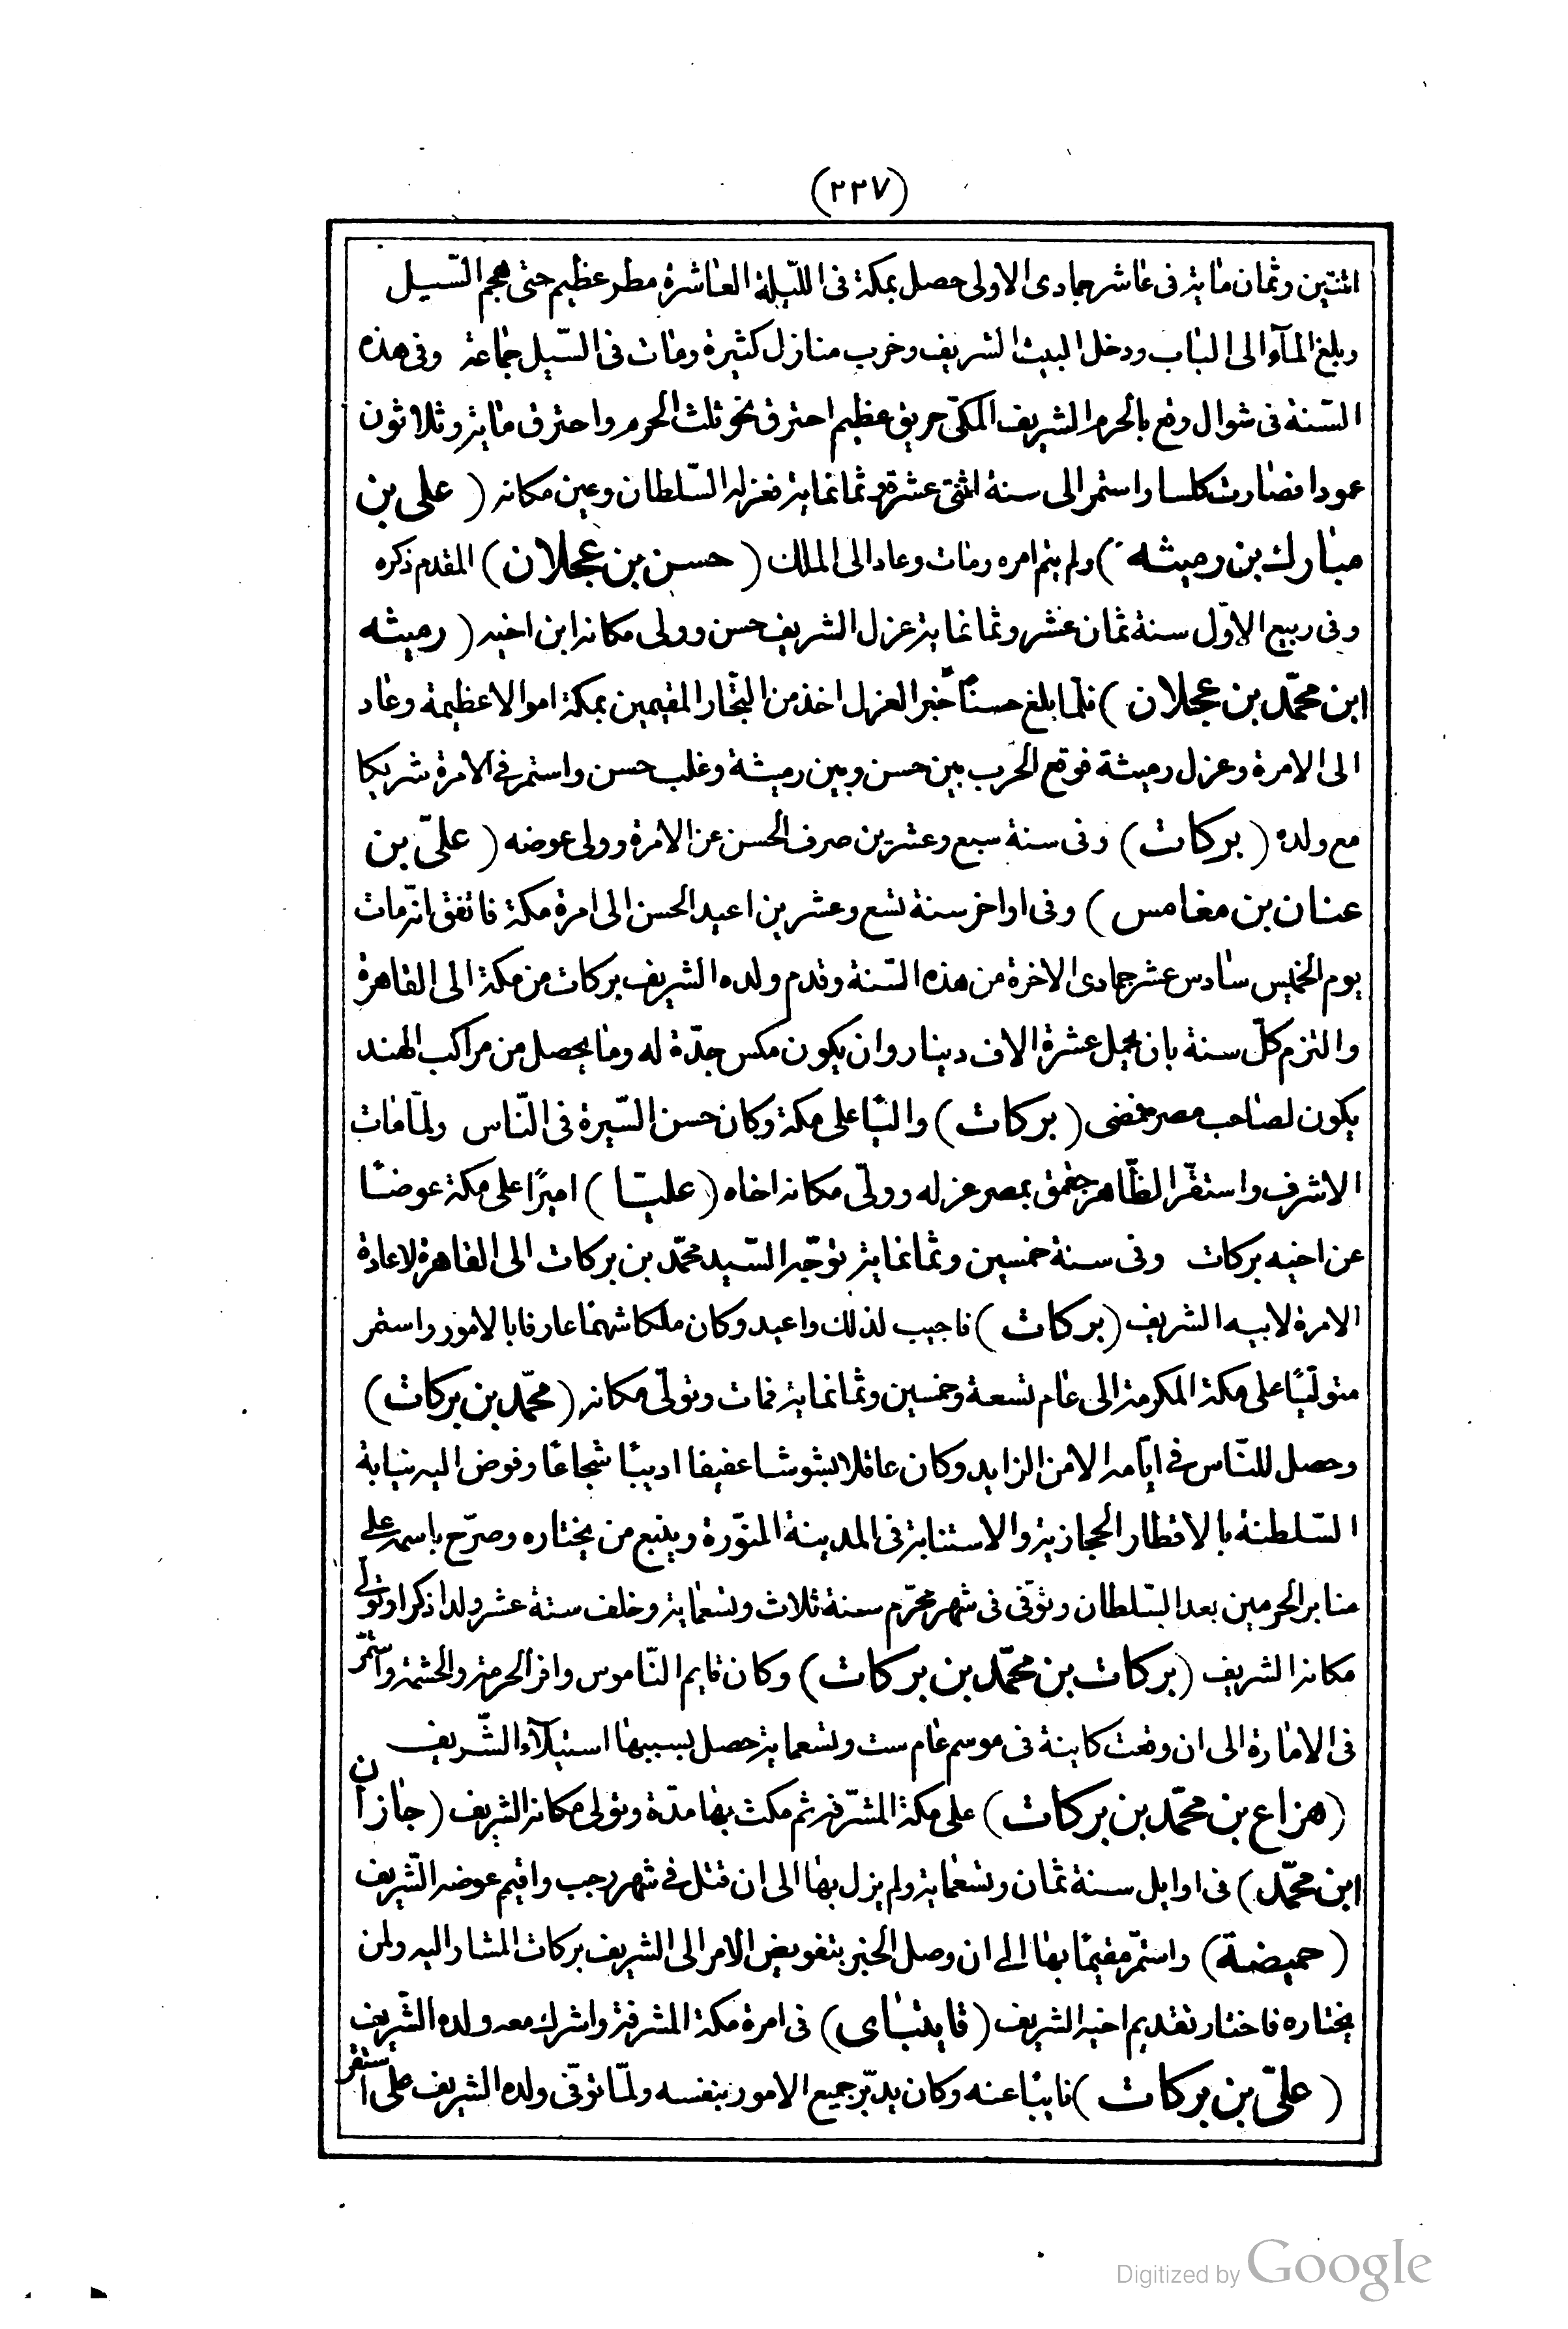 (٢٣٧)
اثنتين وثمان مائة فى عاشر جمادى الاولى حصل بمكة فى الليلة العاشرة مطر عظيم حتى هجم السّيل
وبلغ المآء الى الباب ودخل البيت الشريف وخرب منازل كثيرة ومات فى السّيل جماعة وفى هذه
السّنة فى شوال وقع بالحرم الشريف المكىّ حريق عظيم احترق نحو ثلث الحرم واحترق مائة وثلاثون
عمودا فصارت كلسا واستمر الى سنة اثنتى عشرة وثمانمائة فعزله السّلطان وعين مكانه ( على بن
مبارك بن رميثه ) ولم يتم امره ومات وعاد الى الملك ( حسن بن عجلان ) المقدم ذكره
وفى ربيع الاوّل سنة ثمان عشر وثمانمائة عزل الشريف حسن وولى مكانه ابن اخيه ( رميثه
ابن محمّد بن عجلان ) فلمّا بلغ حسناً خبر العزل اخذ من التجّار المقيمين بمكة اموالا عظيمة وعاد
الى الامرة وعزل رميثة فوقع الحرب بين حسن وبين رميثة وغلب حسن واستمر فى الامرة شريكا
مع ولده ( بركات ) وفى سنة سبع وعشرين صرف الحسن عن الامرة وولى عوضه ( علىّ بن
عنان بن مغامس ) وفى اواخر سنة تسع وعشرين اعيد الحسن الى امرة مكة فاتفق انّه مات
يوم الخميس سادس عشر جمادى الاخرة من هذه السّنة وقدم ولده الشريف بركات من مكة الى القاهرة
والتزم كلّ سنة بان يحمل عشرة الاف دينار وان يكون مكس جدّة له وما يحصل من مراكب الهند
يكون لصاحب مصر فمضى ( بركات ) واليًا على مكة وكان حسن السّيرة فى النّاس ولمّا مات
الاشرف واستقرّ الظّاهر جقمق بمصر عزله وولّى مكانه اخاه ( عليّا ) اميرًا على مكة عوضًا
عن اخيه بركات وفى سنة خمسين وثمانمائة توجّه السّيد محمّد بن بركات الى القاهرة لاعادة
الامرة لابيه الشريف ( بركات ) فاجيب لذلك واعيد وكان ملكا شهمًا عارفا بالامور واستمر
متولّيًا على مكة المكرمة الى عام تسعة وخمسين وثمانمائة فمات وتولّى مكانه ( محمّد بن بركات )
وحصل للنّاس فى ايّامه الامن الزايد وكان عاقلا بشوشا عفيفا اديبًا شجاعًا وفوض اليه نيابة
السّلطنة بالاقطار الحجازية والاستنابة فى المدينة المنوّرة وينبع من يختاره وصرّح باسمه على
منابر الحرمين بعد السّلطان وتوفّى فى شهر محرّم سنة ثلاث وتسعمائة وخلف ستة عشر ولدا ذكرا وتولّى
مكانه الشريف ( بركات بن محمّد بن بركات ) وكان قايم النّاموس وافر الحرمة والحشمة واستمّر
فى الامارة الى ان وقعت كاينة فى موسم عام ست وتسعمائة حصل بسببها استيلآء الشّريف
( هزاع بن محمّد بن بركات ) على مكة المشرّفة ثم مكث بها مدّة وتولى مكانه الشريف ( جازان
ابن محمّد ) فى اوايل سنة ثمان وتسعمائة ولم يزل بها الى ان قتل فى شهر رجب واقيم عوضه الشّريف
( حميضة ) واستمّر مقيمًا بها الى ان وصل الخبر بتفويض الامر الى الشريف بركات المشار اليه ولمن
يختاره فاختار تقديم اخيه الشريف ( قايتباى ) فى امرة مكة المشرفة واشرك معه ولده الشّريف
( علىّ بن بركات ) نايبًا عنه وكان يدبّر جميع الامور بنفسه ولمّا توفّى ولده الشريف على استقر
Digitized by Google